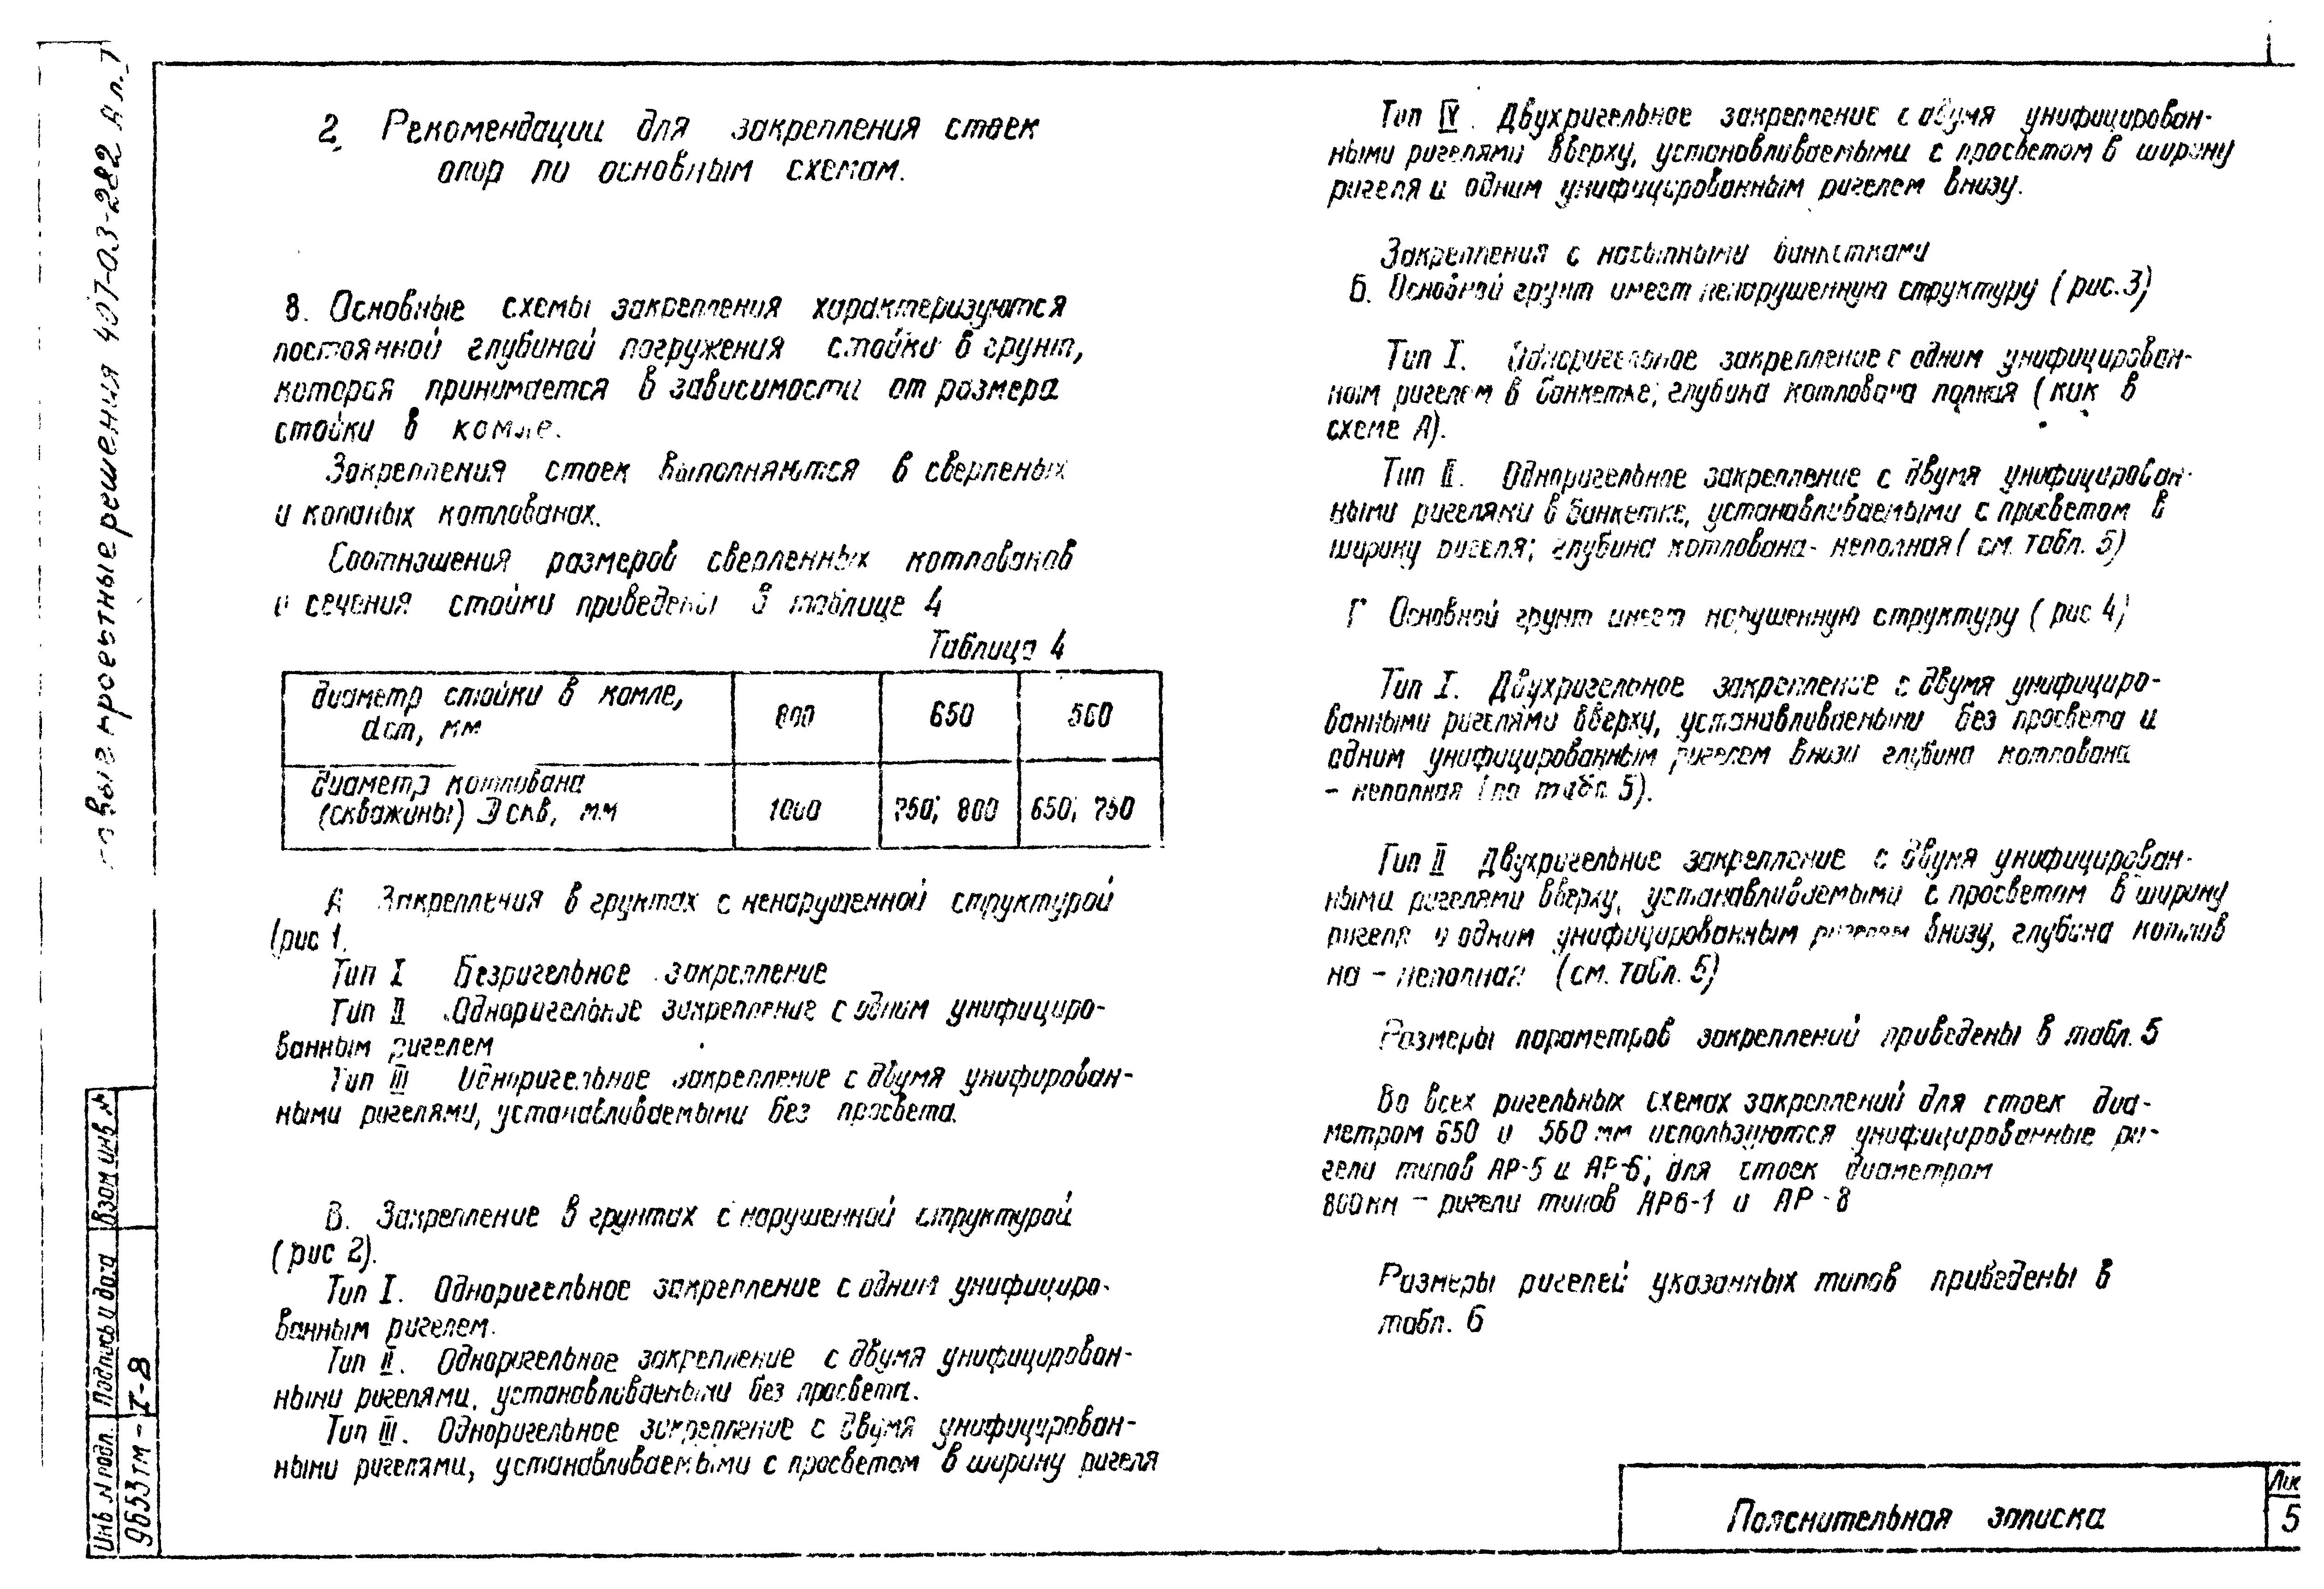 2. Рекомендации для закрепления стоек
опор по основным схемам.
8. Основные схемы закрепления характеризуются
постоянной глубиной погружения стойки в грунт,
которая принимается в зависимости от размера
стойки в комле.
Закрепления стоек выполняются в сверленых
и копаных котлованах.
Соотношения размеров сверленных котлованов
и сечения стойки приведены в таблице 4
Таблица 4
диаметр стойки в комле, 800 650 560
dст, мм
диаметр котлована
(скважины) Dскв, мм 1000 750; 800 650; 750
А Закрепления в грунтах с ненарушенной структурой
(рис 1.
Тип I Безригельное закрепление
Тип II Одноригельное закрепление с одним унифициро-
ванным ригелем
Тип III Одноригельное закрепление с двумя унифирован-
ными ригелями, устанавливаемыми без просвета.
В. Закрепление в грунтах с нарушенной структурой
(рис 2).
Тип I. Одноригельное закрепление с одним унифициро-
ванным ригелем.
Тип II. Одноригельное закрепление с двумя унифицирован-
ными ригелями, устанавливаемыми без просвета.
Тип III. Одноригельное закрепление с двумя унифицирован-
ными ригелями, устанавливаемыми с просветом в ширину ригеля
Тип IV. Двухригельное закрепление с двумя унифицирован-
ными ригелями вверху, устанавливаемыми с просветом в ширину
ригеля и одним унифицированным ригелем внизу.
Закрепления с насыпными банкетками
Б. Основной грунт имеет ненарушенную структуру (рис.3)
Тип I. Одноригельное закрепление с одним унифицирован-
ным ригелем в банкетке; глубина котлована полная (как в
схеме А).
Тип II. Одноригельное закрепление с двумя унифицирован-
ными ригелями в банкетке, устанавливаемыми с просветом в
ширину ригеля; глубина котлована- неполная (см. табл. 5)
Г Основной грунт имеет нарушенную структуру (рис 4)
Тип I. Двухригельное закрепление с двумя унифициро-
ванными ригелями вверху, устанавливаемыми без просвета и
одним унифицированным ригелем внизу глубина котлована
- неполная (по табл 5).
Тип II Двухригельное закрепление с двумя унифицирован-
ными ригелями вверху, устанавливаемыми с просветом в ширину
ригеля и одним унифицированным ригелем внизу, глубина
на - неполная (см. табл. 5)
Размеры параметров закреплений приведены в табл. 5
Во всех ригельных схемах закреплений для стоек диа-
метром 650 и 560 мм используются унифицированные ри-
гели типов АР-5 и АР-6; для стоек диаметром
800мм - ригели типов АР6-1 и АР-8
Размеры ригелей указанных типов приведены в
табл. 6
Пояснительная записка
5
решения 407-03-282
Взам инв №
Подпись и дата
Инв № подл.
9653тм-I-8